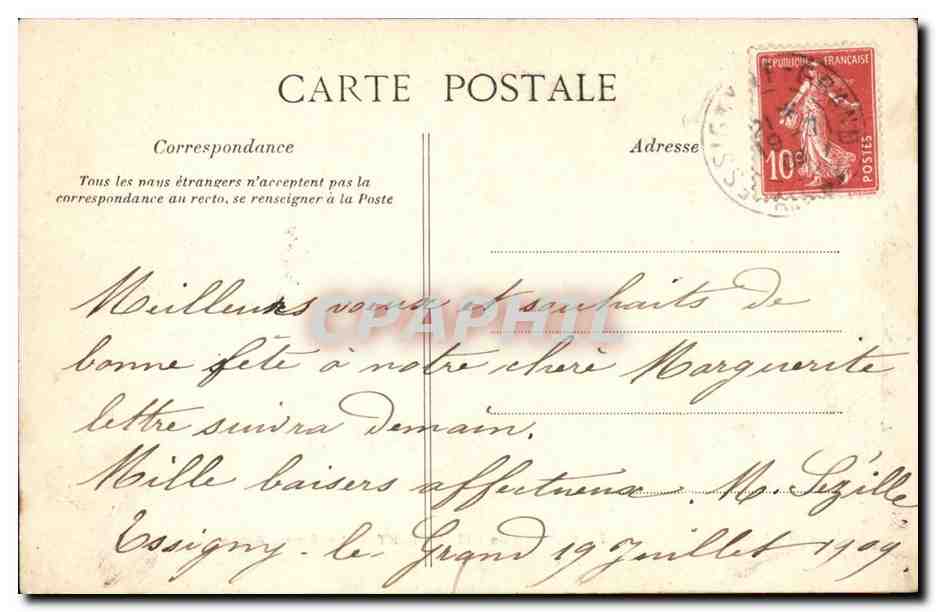 CARTE POSTALE
Correspondance
Adresse
Tous les pays étrangers n'acceptent pas la
correspondance au recto, se renseigner à la Poste
RÉPUBLIQUE FRANÇAISE
10c
POSTES
CPAPHIL
Meilleurs vœux et souhaits de
bonne fête à notre chère Marguerite
lettre suivra demain.
Mille baisers affectueux. M. Lézille
Essigny-le-Grand 19 Juillet 1909.